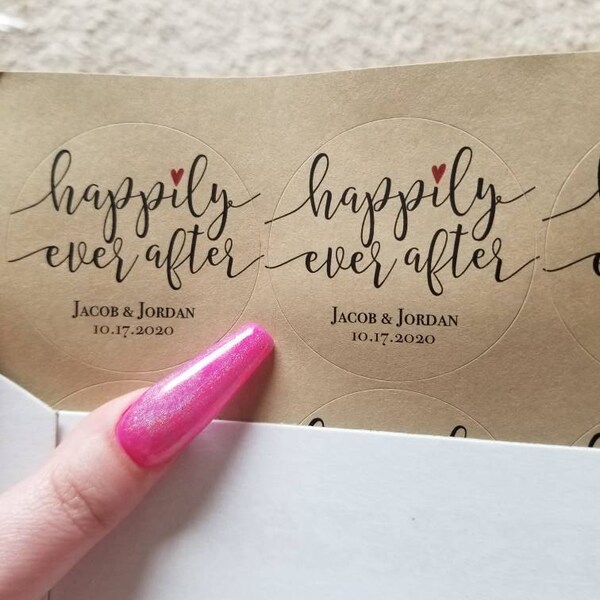 happily
ever after
Jacob & Jordan
10.17.2020
happily
ever after
Jacob & Jordan
10.17.2020